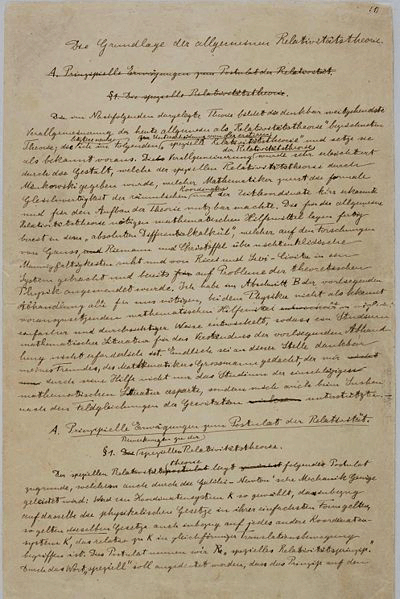 10
Die Grundlage der allgemeinen Relativitätstheorie.
A. Prinzipielle Erwägungen zum Postulat der Relativität.
§1. Die spezielle Relativitätstheorie.
Die im Nachfolgenden dargelegte Theorie bildet die denkbar weitgehendste
Verallgemeinerung der heute allgemein als „Relativitätstheorie" bezeichneten
Theorie; die
letztere nenne ich im Folgenden zur Unterscheidung von der ersteren „spezielle Relativitätstheorie" und setze sie
als bekannt voraus. Die Verallgemeinerung der Relativitätstheorie wurde sehr erleichtert
durch die Gestalt, welche der speziellen Relativitätstheorie durch
Minkowski gegeben wurde, welcher Mathematiker zuerst die formale
Gleichwertigkeit der räumlichen Koordinaten und der Zeitkoordinate klar erkannte
und für den Aufbau der Theorie nutzbar machte. Die für die allgemeine
Relativitätstheorie nötigen mathematischen Hilfsmittel lagen fertig
bereit in dem „absoluten Differentialkalkül", welcher auf den Forschungen
von Gauss, Riemann und Christoffel über nichteuklidische
Mannigfaltigkeiten ruht und von Ricci und Levi-Civita in ein
System gebracht und bereits auf Probleme der theoretischen
Physik angewendet wurde. Ich habe im Abschnitt B der vorliegenden
Abhandlung alle für uns nötigen, bei dem Physiker nicht als bekannt
vorauszusetzenden mathematischen Hilfsmittel in
einfacher und durchsichtiger Weise entwickelt, sodass ein Studium
mathematischer Literatur für das Verständnis der vorliegenden Abhand
lung nicht erforderlich ist. Endlich sei an dieser Stelle dankbar
meines Freundes, des Mathematikers Grossmann gedacht, der mir
durch seine Hilfe nicht nur das Studium der einschlägigen
mathematischen Literatur ersparte, sondern mich auch beim Suchen
nach den Feldgleichungen der Gravitation unterstützte.
A. Prinzipielle Erwägungen zum Postulat der Relativität.
Bemerkungen zu der
§1. speziellen Relativitätstheorie.
Der speziellen Relativitätstheorie liegt folgendes Postulat
zugrunde, welchem auch durch die Galilei-Newton'sche Mechanik Genüge
geleistet wird: Wird ein Koordinatensystem K so gewählt, dass inbezug
auf dasselbe die physikalischen Gesetze in ihrer einfachsten Form gelten,
so gelten dieselben Gesetze auch inbezug auf jedes andere Koordinaten-
system K', das relativ zu K in gleichförmiger Translationsbewegung
begriffen ist. Dies Postulat nennen wir „spezielles Relativitätsprinzip".
Durch das Wort „speziell" soll angedeutet werden, dass das Prinzip auf den